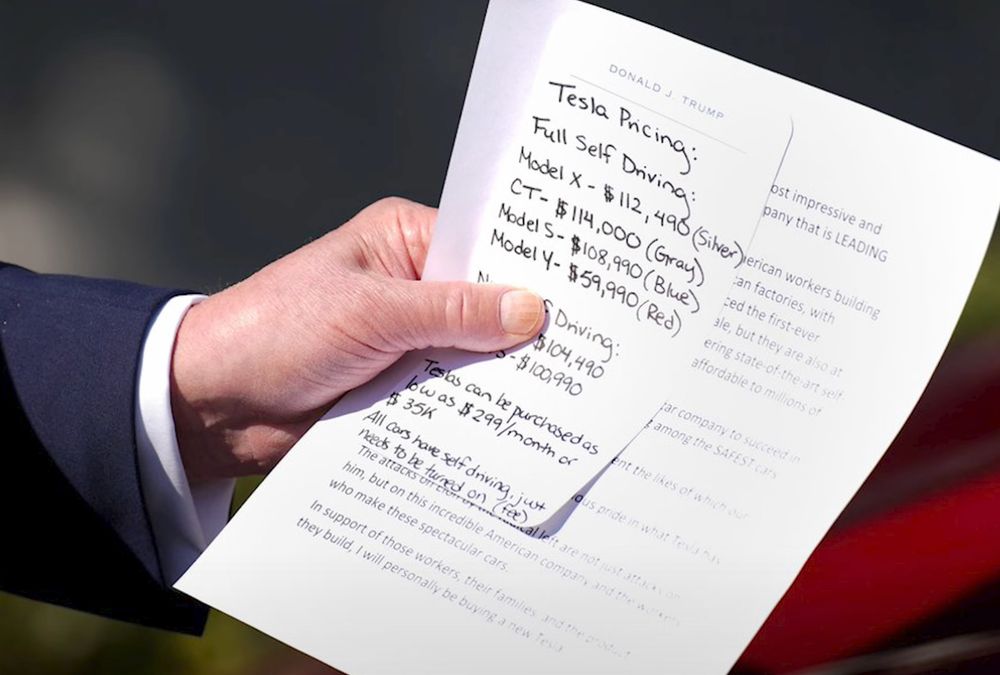 DONALD J. TRUMP
Tesla Pricing:
Full Self Driving:
Model X - $112,490 (Silver)
CT - $114,000 (Gray)
Model S - $108,990 (Blue)
Model Y - $59,990 (Red)
Driving:
$104,490
S - $100,990
Teslas can be purchased as
low as $299/month or
$35K
All cars have self driving, just
needs to be turned on (fee)
ost impressive and
pany that is LEADING
erican workers building
an factories, with
ced the first-ever
ale, but they are also at
ering state-of-the-art self
affordable to millions of
ar company to succeed in
among the SAFEST cars
ent the likes of which our
ous pride in what Tesla has
The attacks on left are not just attacks on
him, but on this incredible American company and the workers
who make these spectacular cars.
In support of those workers, their families, and the product
they build, I will personally be buying a new Tesla